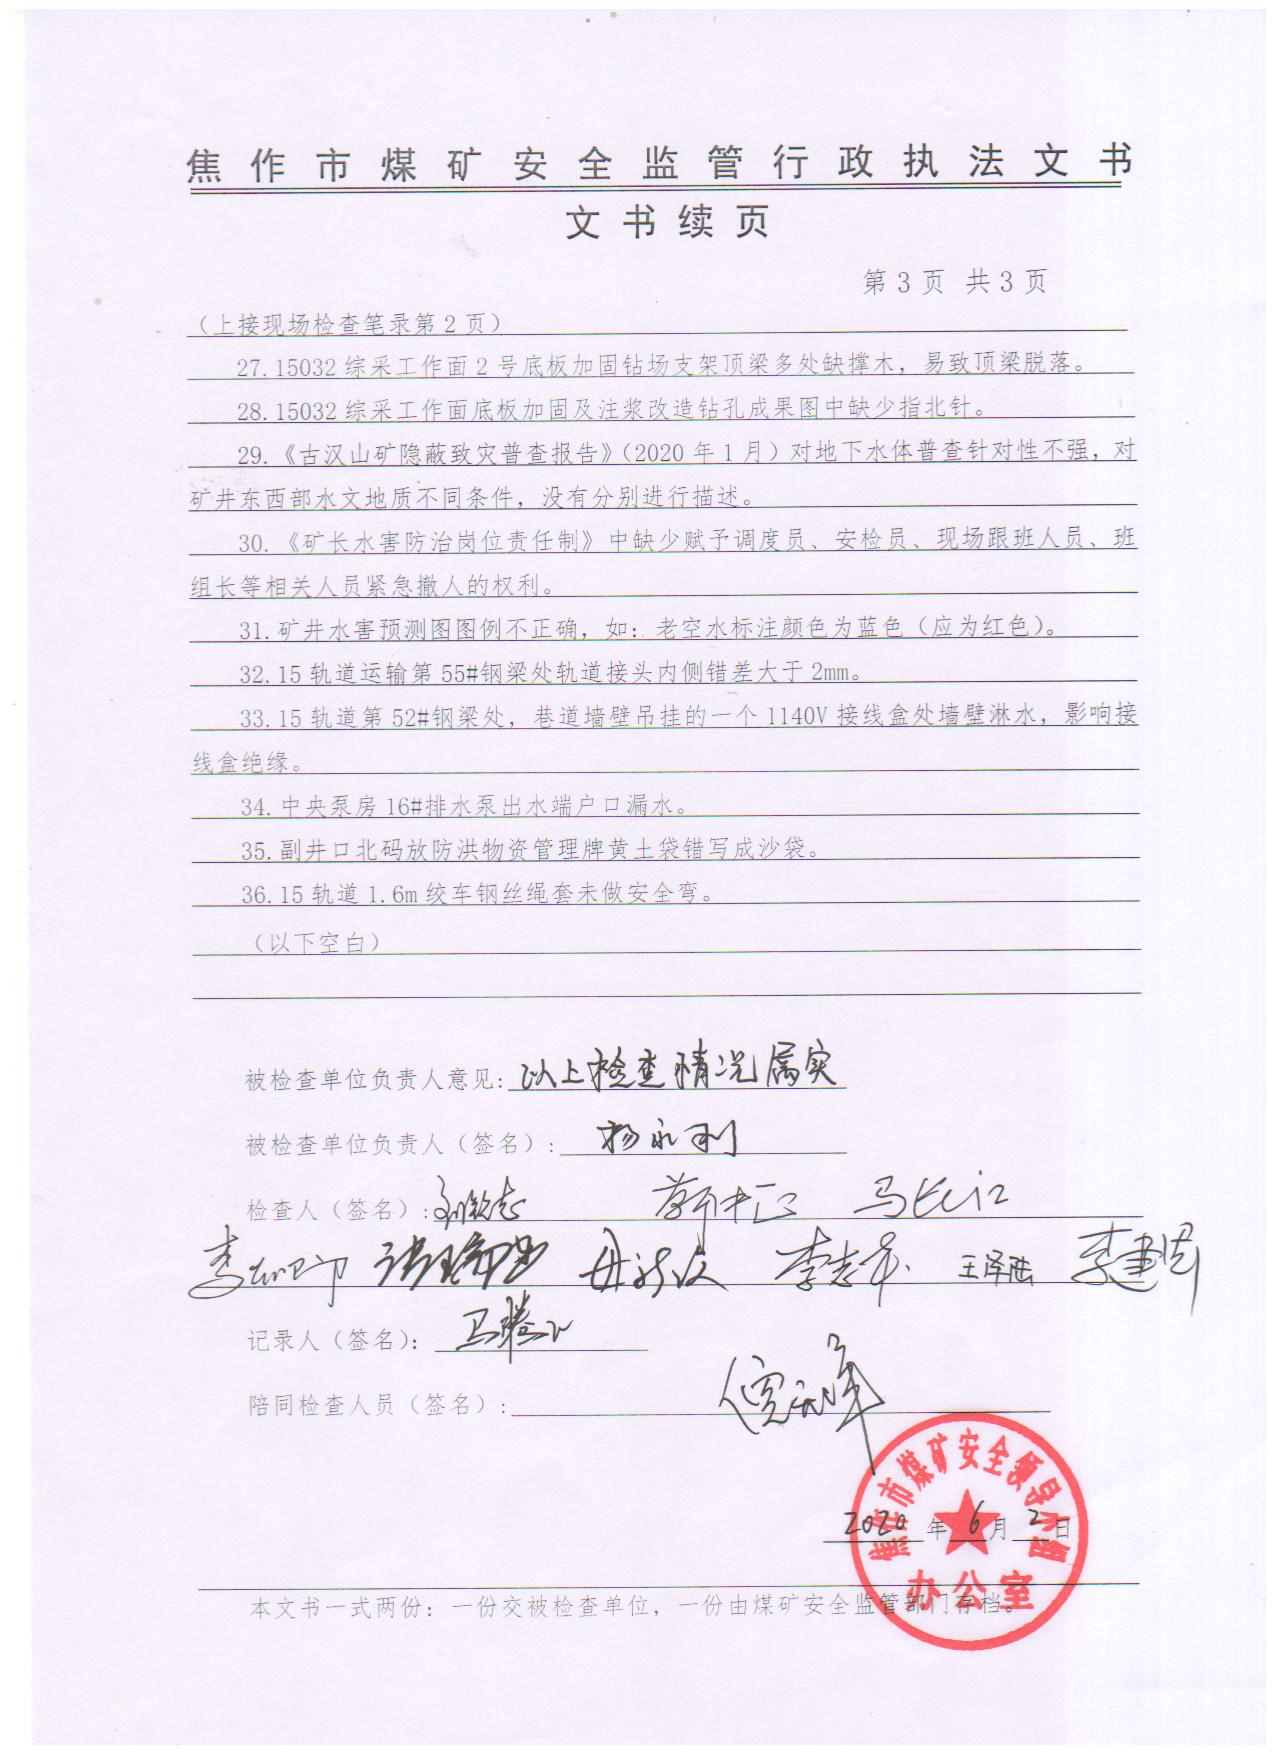 焦作市煤矿安全监管行政执法文书
文书续页
第3页 共3页
（上接现场检查笔录第2页）
27.15032综采工作面2号底板加固钻场支架顶梁多处缺撑木，易致顶梁脱落。
28.15032综采工作面底板加固及注浆改造钻孔成果图中缺少指北针。
29.《古汉山矿隐蔽致灾普查报告》（2020年1月）对地下水体普查针对性不强，对
矿井东西部水文地质不同条件，没有分别进行描述。
30.《矿长水害防治岗位责任制》中缺少赋予调度员、安检员、现场跟班人员、班
组长等相关人员紧急撤人的权利。
31.矿井水害预测图图例不正确，如：老空水标注颜色为蓝色（应为红色）。
32.15轨道运输第55#钢梁处轨道接头内侧错差大于2mm。
33.15轨道第52#钢梁处，巷道墙壁吊挂的一个1140V接线盒处墙壁淋水，影响接
线盒绝缘。
34.中央泵房16#排水泵出水端户口漏水。
35.副井口北码放防洪物资管理牌黄土袋错写成沙袋。
36.15轨道1.6m绞车钢丝绳套未做安全弯。
（以下空白）
被检查单位负责人意见：以上检查情况属实
被检查单位负责人（签名）：杨永利
检查人（签名）： 马长江
李志平 王泽陆 李建国
记录人（签名）：
陪同检查人员（签名）：
2020年6月2日
焦作市煤矿安全领导小组
办公室
本文书一式两份：一份交被检查单位，一份由煤矿安全监管部门存档。